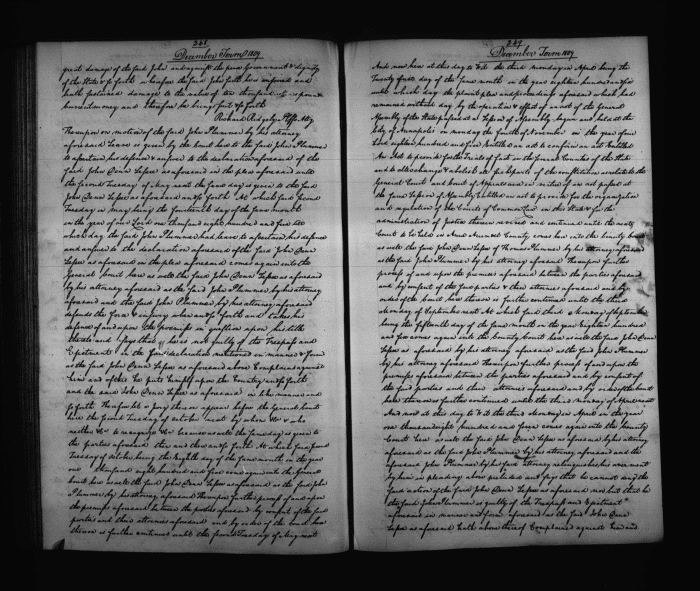 December Term 1809
great damage of the said John and against the peace Government & dignity
of the State & so forth wherefore the said John saith he is injured and
hath sustained damage to the value of ten thousand pounds
current money and therefore he brings suit & so forth
Richard Ridgely Plffs Atty
Thereupon on motion of the said John Plummer by his attorney
aforesaid Leave is given by the court here to the said John Plummer
to the declaration aforesaid of the
said John Denn Lessee as aforesaid in the plea aforesaid until
the second Tuesday of May next the same day is given to the said
John Denn Lessee as aforesaid and so forth At which said second
Tuesday in May being the fourteenth day of the same month
in the year of our Lord one thousand eight hundred and five
which day the said John Plummer had leave to his defence
and answer to the declaration aforesaid of the said John Denn
Lessee as aforesaid in the plea aforesaid comes again into the
General Court here as well the said John Denn Lessee as aforesaid
by his attorney aforesaid as the said John Plummer by his attorney
aforesaid and the said John Plummer by his attorney aforesaid
defends the force & injury when and so forth and takes his
defence and upon the premises in question upon his title
thereto and says that he is not guilty of the Trespass and
Ejectment in the said declaration mentioned in manner & form
as the said John Denn Lessee as aforesaid above Complains against
him and of this he puts himself upon the Country and so forth
and the said John Denn Lessee as aforesaid in like manner and
so forth Therefore let a Jury thereon appear before the General Court
here the second Tuesday of October next by whom &c & who
neither &c to recognize &c because as well &c the same day is given to
the parties aforesaid then and there and so forth At which said second
Tuesday of October being the eighth day of the same month in the year
one thousand eight hundred and five come again into the General
Court here as well the said John Denn Lessee as aforesaid as the said John
Plummer by his attorney aforesaid Thereupon further proof of and upon
the premises aforesaid between the parties aforesaid by consent of the said
parties and their attornies aforesaid and by order of the Court here
thereon is further continued until the second Tuesday of May next
December Term 1809
And now here at this day to wit the third monday in April being the
Twenty first day of the same month in the year eighteen hundred and six
until which day the plaint plea and proceedings aforesaid which had
remained without day by the operation & effect of an act of the General
Assembly of the State passed at a Session of Assembly begun and held at the
City of Annapolis on monday the fourth of November in the year of our
Lord eighteen hundred and five Entitled an act to confirm an act Entitled
An Act to provide for the Trials of facts in the several Counties of the State
and to alter change & abolish all such parts of the constitution as relate to the
General Court and Court of Appeals and in virtue of an act passed at
the same Session of Assembly Entitled an act to provide for the organization
and regulation of the Courts of Common Law in this State & for the
administration of Justice therein revived and continued until the next
Court to be held in Anne Arundel County come here into the County Court
as well the said John Denn Lessee of Thomas Plummer by his attorney aforesaid
as the said John Plummer by his attorney aforesaid Thereupon further
proof of and upon the premises aforesaid between the parties aforesaid
and by consent of the said parties & their attornies aforesaid and by
order of the Court here thereon is further continued until the third
Monday of September next At which said third Monday of September
being the fifteenth day of the same month in the year Eighteen hundred
and six comes again into the County Court here as well the said John Denn
Lessee as aforesaid by his attorney aforesaid as the said John Plummer
by his attorney aforesaid Thereupon further proof of and upon the
premises aforesaid between the parties aforesaid and by consent of
the said parties and their attornies aforesaid and by order of the Court
here thereon is further continued until the third Monday of April next
And now at this day to wit the third Monday in April in the year
one thousand eight hundred and seven comes again into the County
Court here as well the said John Denn Lessee as aforesaid by his attorney
aforesaid as the said John Plummer by his attorney aforesaid and the
aforesaid John Plummer by his said attorney relinquishes his averment
by him in pleading above pleaded and says that he cannot deny the
said action of the said John Denn Lessee as aforesaid nor but that he
the said John Plummer is guilty of the Trespass and Ejectment
aforesaid in manner and form aforesaid as the said John Denn
Lessee as aforesaid hath above thereof Complained against him and